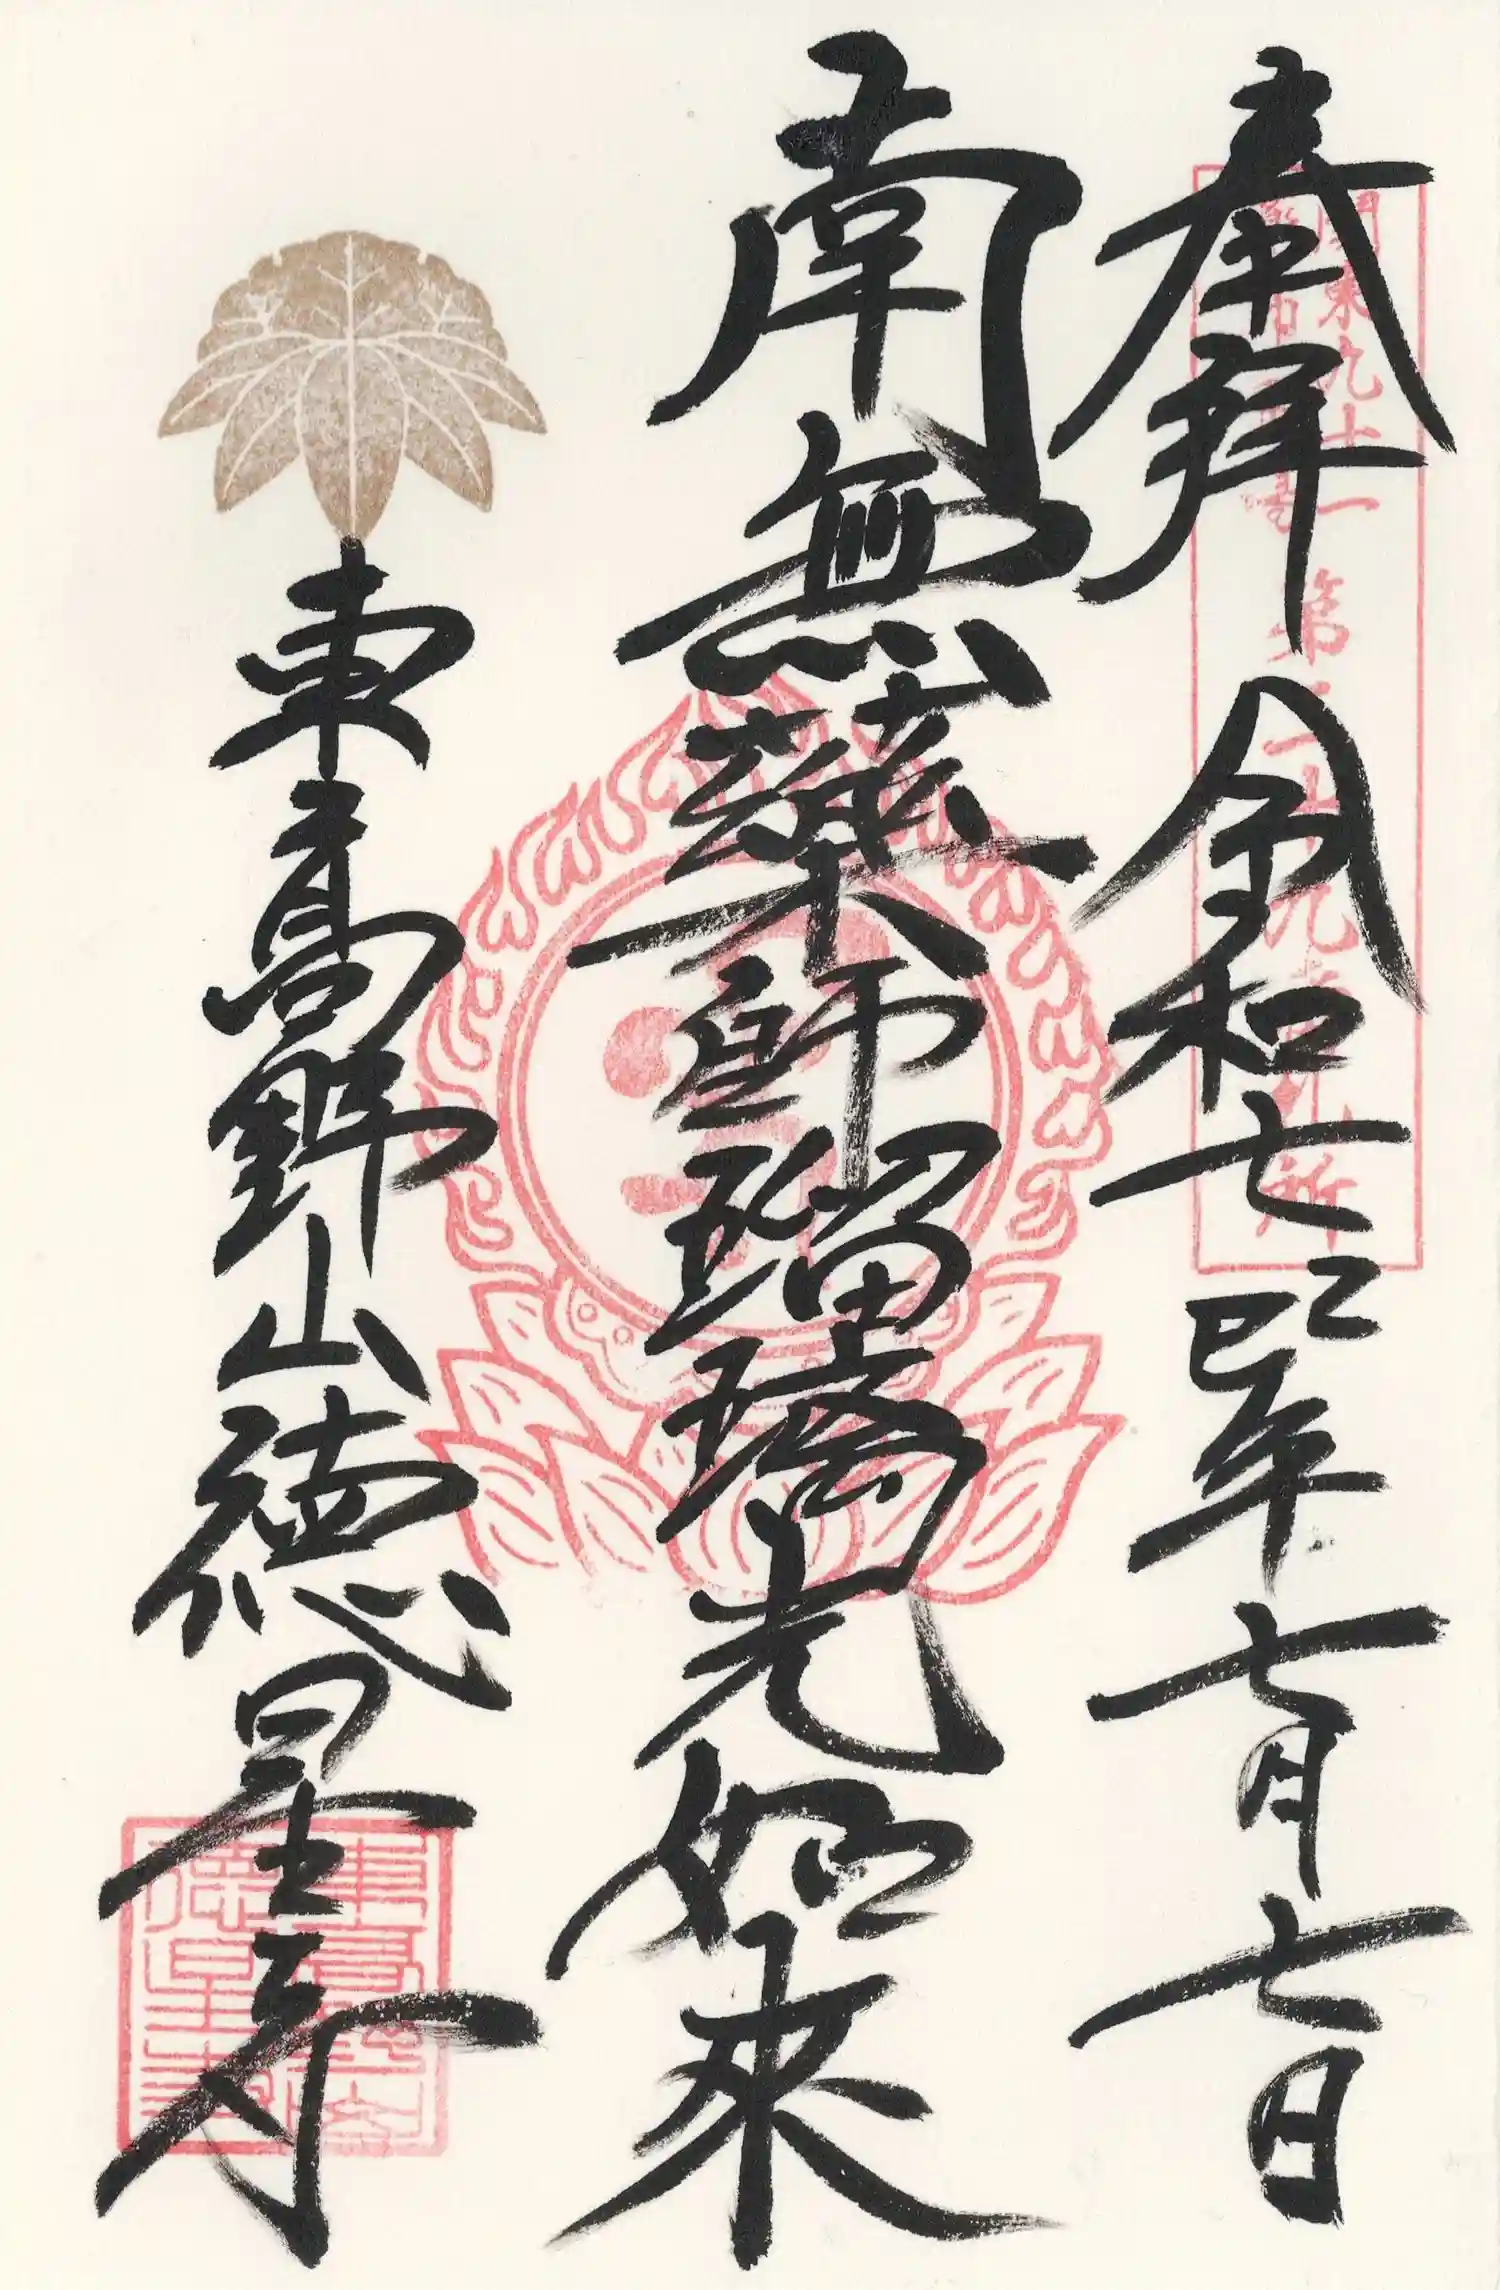 奉拜 令和七乙巳年七月七日
南無藥師瑠璃光如来
東高野山徳星寺
関東九十一
薬師霊場 第二十九番札所
東高野山
徳星寺